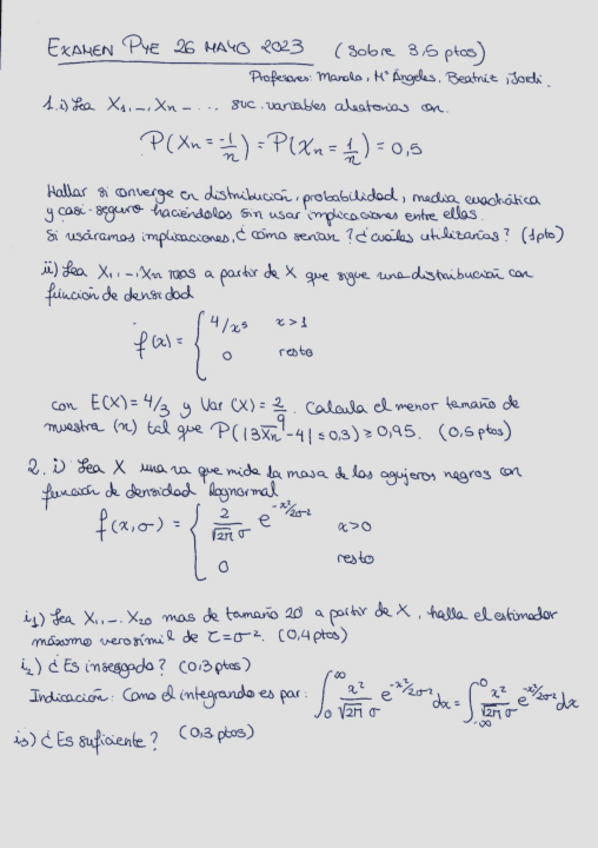 EXAMEN PYE 26 MAYO 2023 (Sobre 3,5 ptos)
Profesores: Manolo, Mª Ángeles, Beatriz, Jordi.
1. i) Sea X₁, -, Xn - ... suc. variables aleatorias con.
P(Xn = -1/n) = P(Xn = 1/n) = 0,5
Hallar si converge en distribución, probabilidad, media cuadrática
y casi-seguro haciéndolos sin usar implicaciones entre ellas.
Si usáramos implicaciones, ¿cómo serían? ¿cuáles utilizarías? (1pto)
ii) Sea X₁, -, Xn mas a partir de X que sigue una distribución con
función de densidad
f(x) = { 4/x⁵ x>1
0 resto
con E(X) = 4/3 y Var(X) = 2/9. Calcula el menor tamaño de
muestra (n) tal que P(|3X̄n - 4| ≤ 0,3) ≥ 0,95. (0,5 ptos)
2. i) Sea X una va que mide la masa de los agujeros negros con
función de densidad lognormal
f(x,σ) = { 2/√2π σ e^-x²/2σ² x>0
0 resto
i₁) Sea X₁, -, X₂₀ mas de tamaño 20 a partir de X, halla el estimador
máximo verosímil de τ=σ². (0,4 ptos)
i₂) ¿Es insesgado? (0,3 ptos)
Indicación: Como el integrando es par: ∫₀^∞ x²/√2π σ e^-x²/2σ² dx = ∫_-∞^0 x²/√2π σ e^-x²/2σ² dx
i₃) ¿Es suficiente? (0,3 ptos)